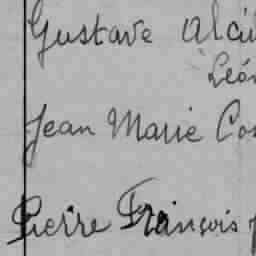 Gustave Alci
Léon
Jean Marie Cos
Pierre François